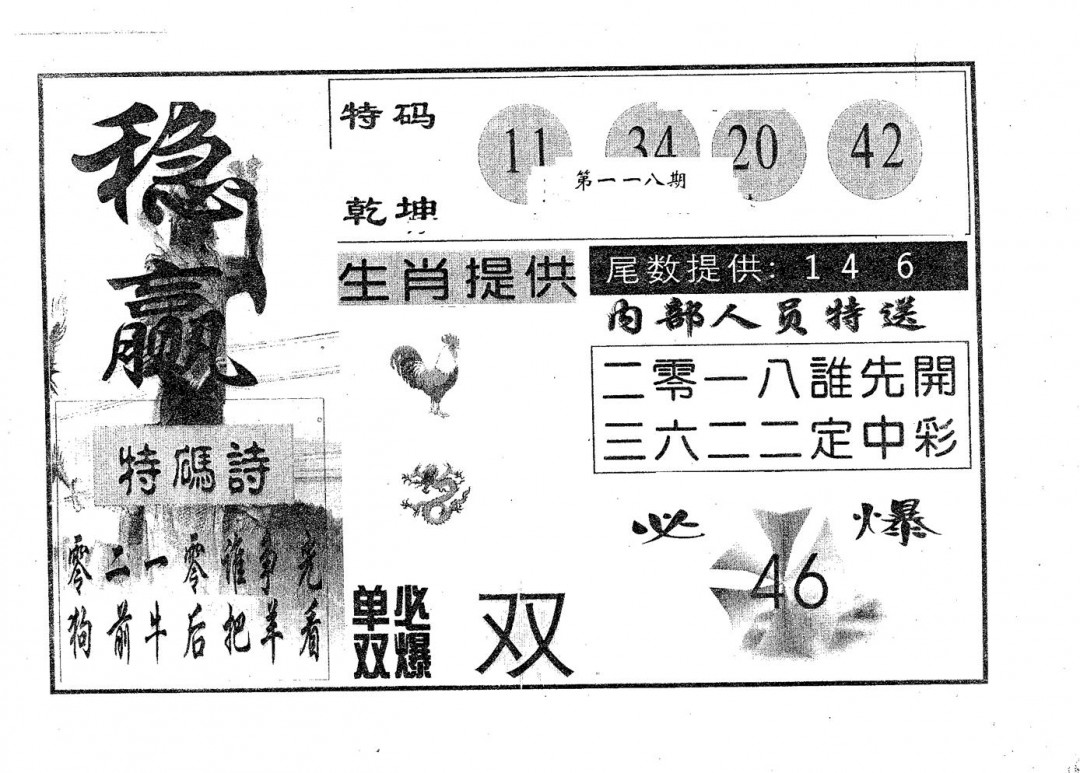 稳
赢
特码
乾坤
11 34 20 42
第一一八期
生肖提供
尾数提供: 1 4 6
内部人员特送
二零一八誰先開
三六二二定中彩
特碼詩
零二一零谁争先
狗前牛后把羊看
必爆
46
单必
双爆
双